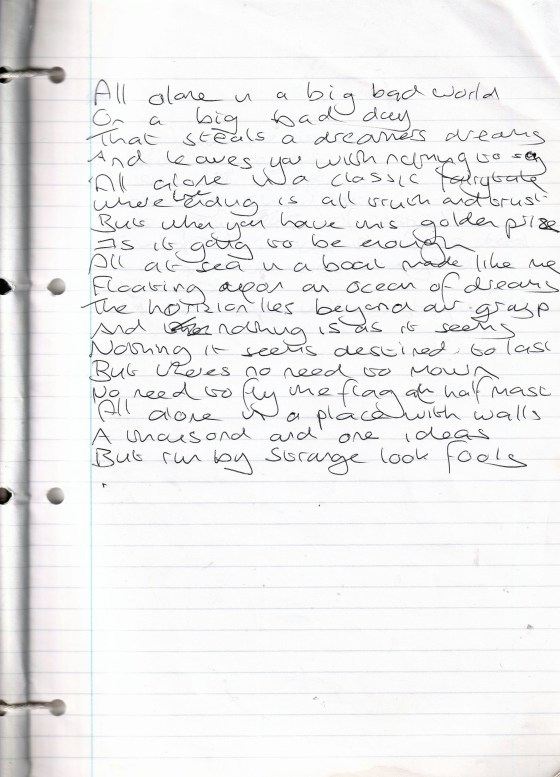 All alone in a big bad world
On a big bad day
That steals a dreamers dreams
And leaves you with nothing to say
All alone in a classic fairytale
Where the ending is all truth and trust
But when you have this golden prize
Is it going to be enough
All at sea in a boat made like me
Floating upon an ocean of dreams
The horizion lies beyond our grasp
And nothing is as it seems
Nothing it seems destined to last
But theres no need to mown
No need to fly the flag at half mast
All alone in a place with walls
A thousand and one ideas
But run by strange look fools